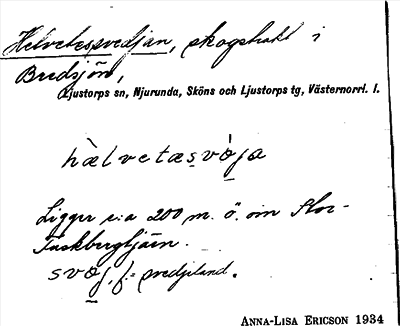 Helvetessvedjan, skogstrakt i
Bredsjön,
Ljustorps sn, Njurunda, Sköns och Ljustorps tg, Västernorrl. l.
hælvetæsvòja
Ligger c:a 200 m. ö. om Stor-
Täckbergtjärn.
svoj, f.= svedjeland.
ANNA-LISA ERICSON 1934